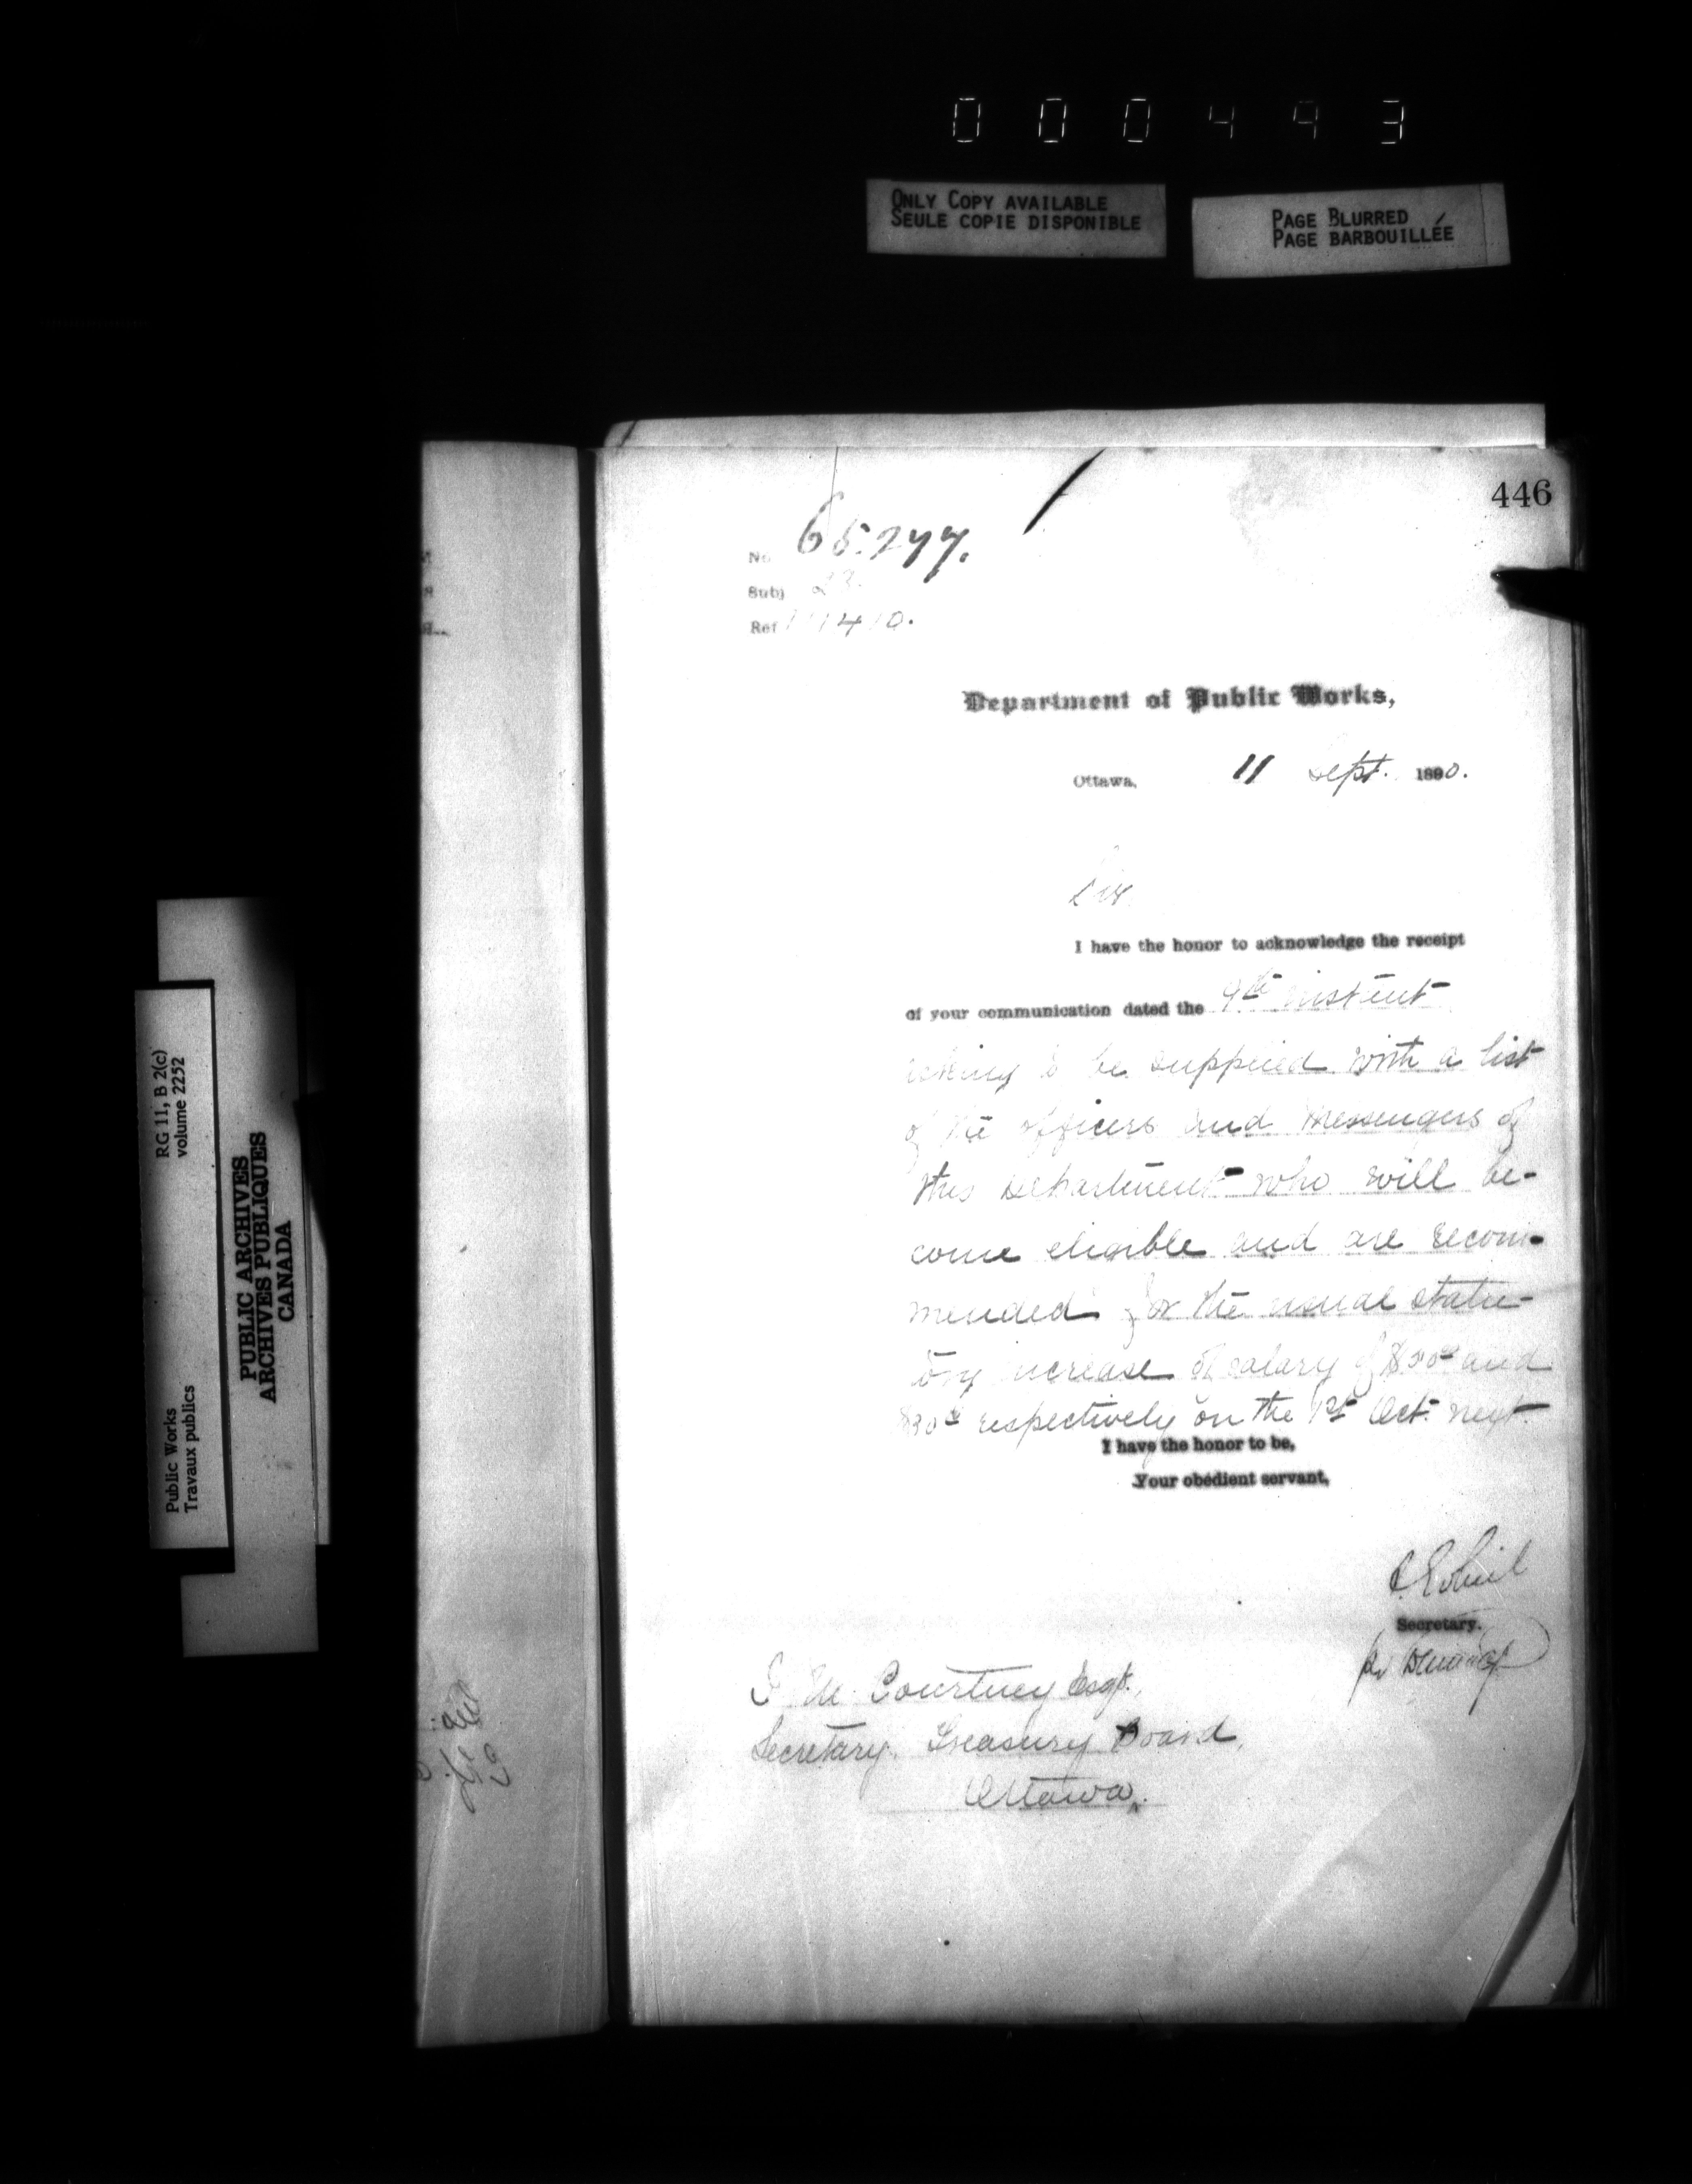 000493
ONLY COPY AVAILABLE
SEULE COPIE DISPONIBLE
PAGE BLURRED
PAGE BARBOUILLÉE
446
No 65277.
Subj 23.
Ref
Department of Public Works,
Ottawa, 11 Sept. 1890.
Sir
I have the honor to acknowledge the receipt
of your communication dated the 9th instant
asking to be supplied with a list
of the officers and messengers of
this Department who will be-
come eligible and are recom-
mended for the usual statu-
tory increase of salary of $50 and
$30 respectively on the 1st Oct. next.
I have the honor to be,
Your obedient servant,
Secretary.
J. M. Courtney Esqr.,
Secretary, Treasury Board,
Ottawa.
RG 11, B 2(c)
volume 2252
Public Works
Travaux publics
PUBLIC ARCHIVES
ARCHIVES PUBLIQUES
CANADA